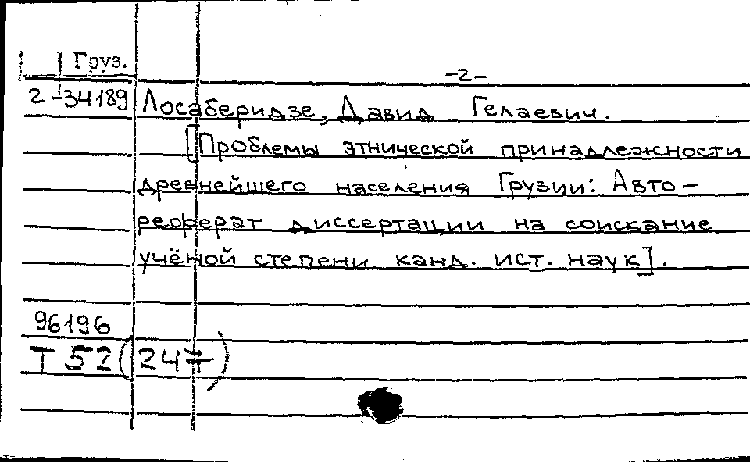 Груз.
-2-
2-34189 Лосаберидзе, Давид Гелаевич.
[Проблемы этнической принадлежности
древнейшего населения Грузии: Авто-
реферат диссертации на соискание
учёной степени канд. ист. наук].
96196
Т 52(247)